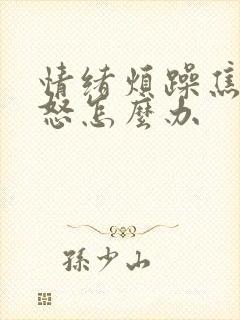 情绪煩躁焦
怒怎麼办
孫少山